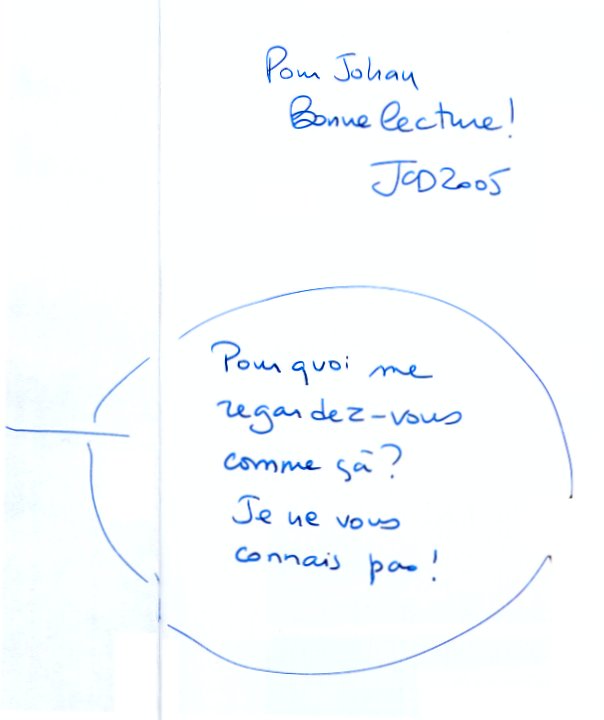 Pour Johan
Bonne lecture!
JCD2005
Pourquoi me
regardez-vous
comme çà?
Je ne vous
connais pas!